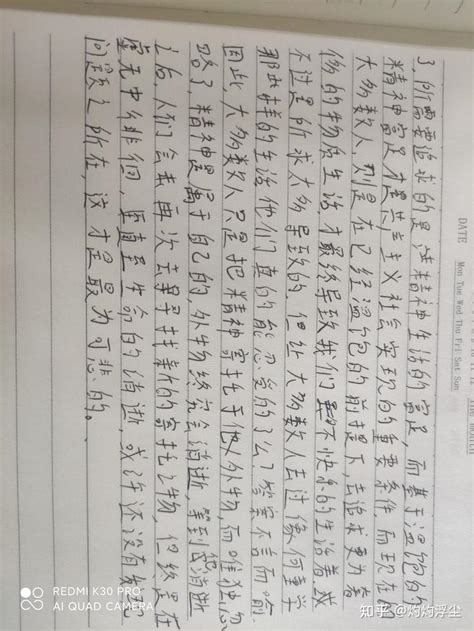 3.所需要追求的是 精神生活的富足 而基于温饱的
精神富足才是共产主义社会实现的重要条件,而现在的
大多数人,则是在已经温饱的前提下,去追求更为奢
侈的物质生活,才最终导致我们 不快乐的生活着
不过是所求太多导致的,但让大多数人去过像
那 样的生活他们真的能忍受的了么?答案不言而喻.
因此大多数人只是把精神寄托于他人外物,而唯独忽
略了,精神是属于自己的,外物终究会消逝,等到 消逝
之后,人们会去再次去寻找新的寄托之物,但终是在
虚无中徘徊,要直至生命的消逝,或许还没有发现
问题之所在,这才是最为可悲的。
DATE
Mon Tue Wed Thu Fri Sat Sun
REDMI K30 PRO
AI QUAD CAMERA
知乎 @灼灼浮尘